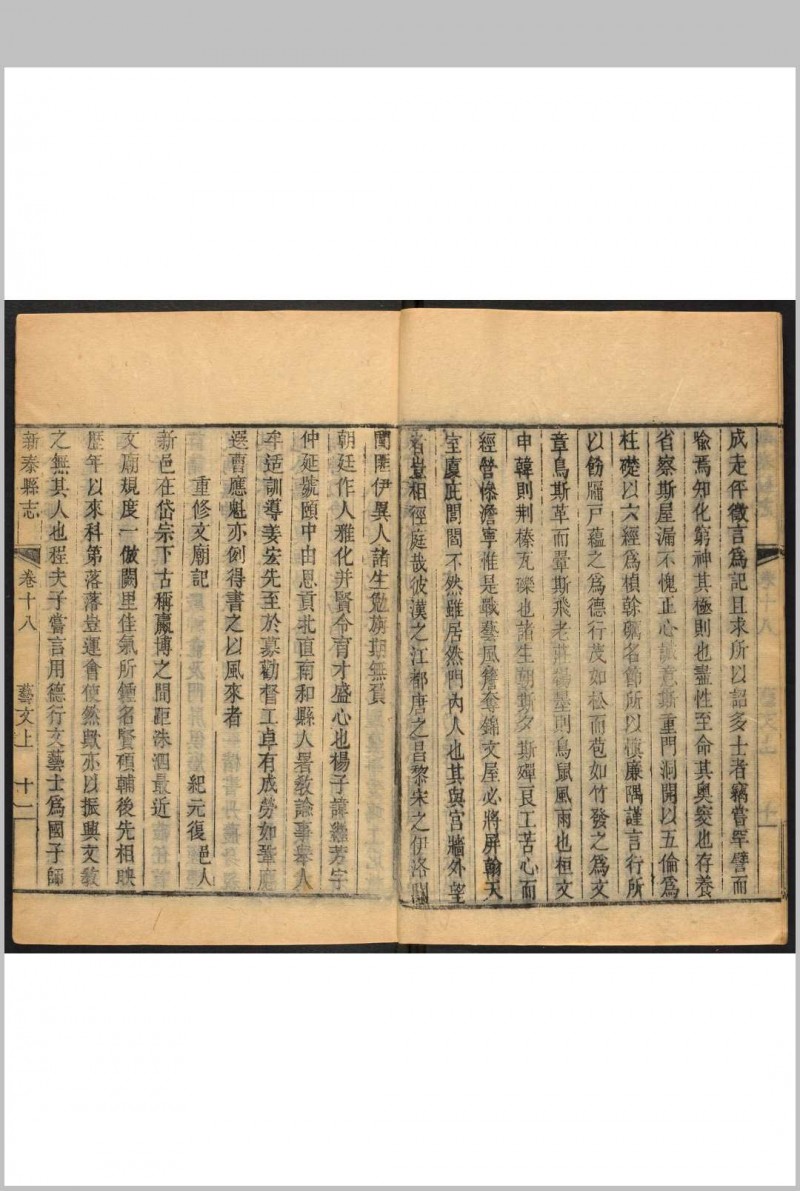 成走伻徵言爲記且求所以詔多士者竊嘗罕譬而
喻焉知化窮神其極則也盡性至命其奧窔也存養
省察斯屋漏不愧正心誠意斯重門洞開以五倫爲
柱礎以六經爲楨幹礪名節所以愼廉隅謹言行所
以飭牖戸蘊之爲德行茂如松而苞如竹發之爲文
章鳥斯革而翬斯飛老莊楊墨則鳥鼠風雨也桓文
申韓則荆榛瓦礫也諸生朝斯夕斯殫良工苦心而
經營慘澹寧惟是戰藝風簷奪錦文屋必將屏翰天
室廈庇閭閻不然雖居然門內人也其與宮牆外望
者豈相徑庭哉彼漢之江都唐之昌黎宋之伊洛關
閩匪伊異人諸生勉旃期無負
朝廷作人雅化并賢令育才盛心也楊子諱繼芳字
仲延號頤中由恩貢北直南和縣人署敎諭事舉人
牟适訓導姜宏先至於募勸督工卓有成勞如鞏應
選曹應魁亦例得書之以風來者
重修文廟記 紀元復邑人
新邑在岱宗下古稱嬴博之間距洙泗最近
文廟規度一倣闕里佳氣所鍾名賢碩輔後先相映
歷年以來科第落落豈運會使然歟亦以振興文敎
之無其人也程夫子嘗言用德行文藝士爲國子師
新泰縣志 卷十八 藝文上 十一